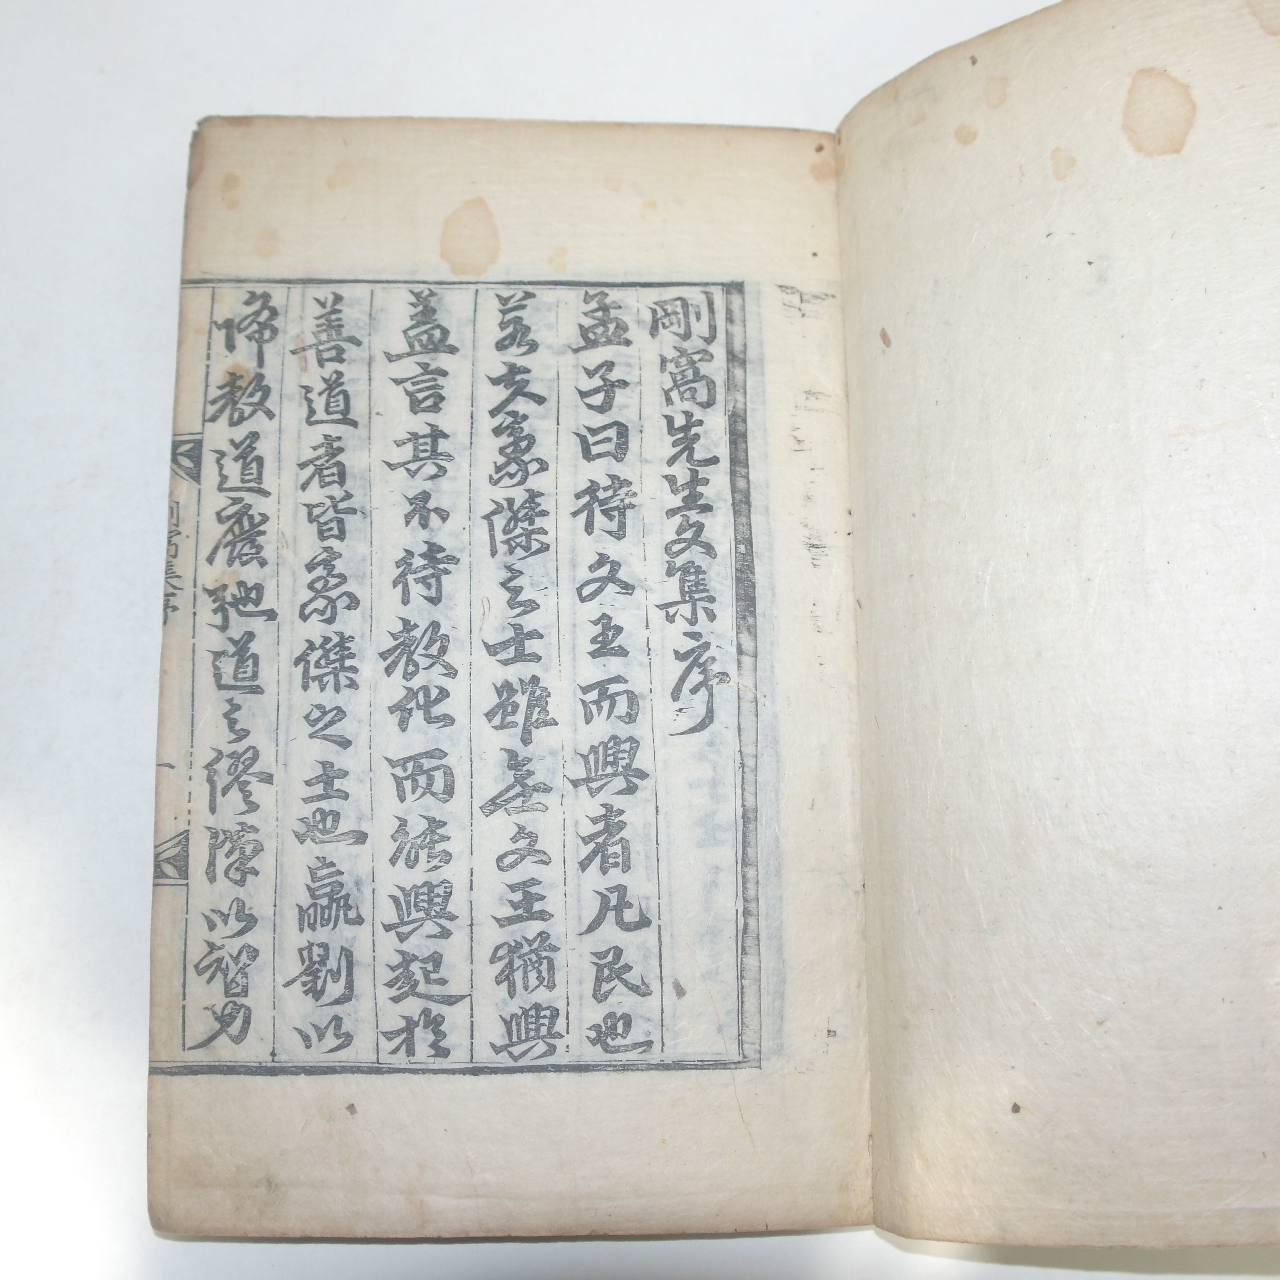 剛窩先生文集序
孟子曰待文王而興者凡民也
若夫豪傑之士雖無文王猶興
蓋言其不待教化而能興起於
善道者皆豪傑之士也嬴劉以
降教道廢弛道之繆陳以智力
剛窩集序
一